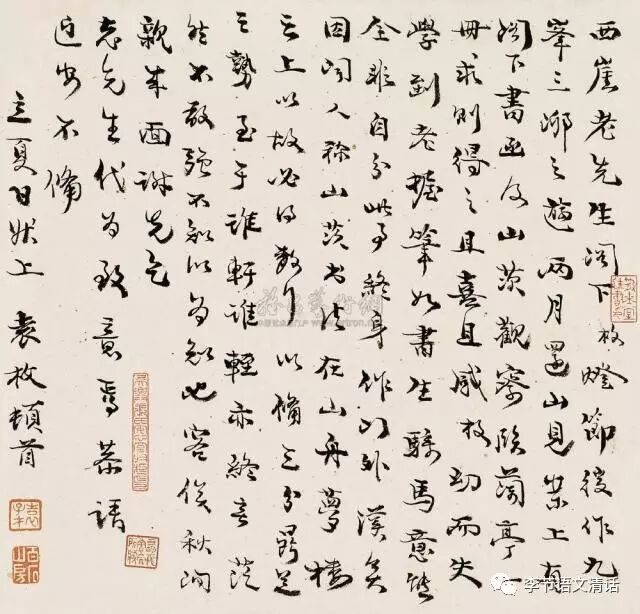 西崖老先生阁下枚燈節後作九
峯三泖之遊两月還山見案上有
阁下書函及山茨觀察臨蘭亭一
冊求則得之且喜且感枚幼而失
學到老握筆如書生騎馬意態
全非自分此事終身作门外漢矣
因闻人称山茨書法在山舟夢樓
之上以故必得數行以備三分鼎足
之勢至于誰軒誰輊亦終茫
然不敢强不知以為知也容俟秋间
親来面謝先乞
老先生代為致意焉恭請
近安不備
立夏日狀上 袁枚頓首
李节语文清话